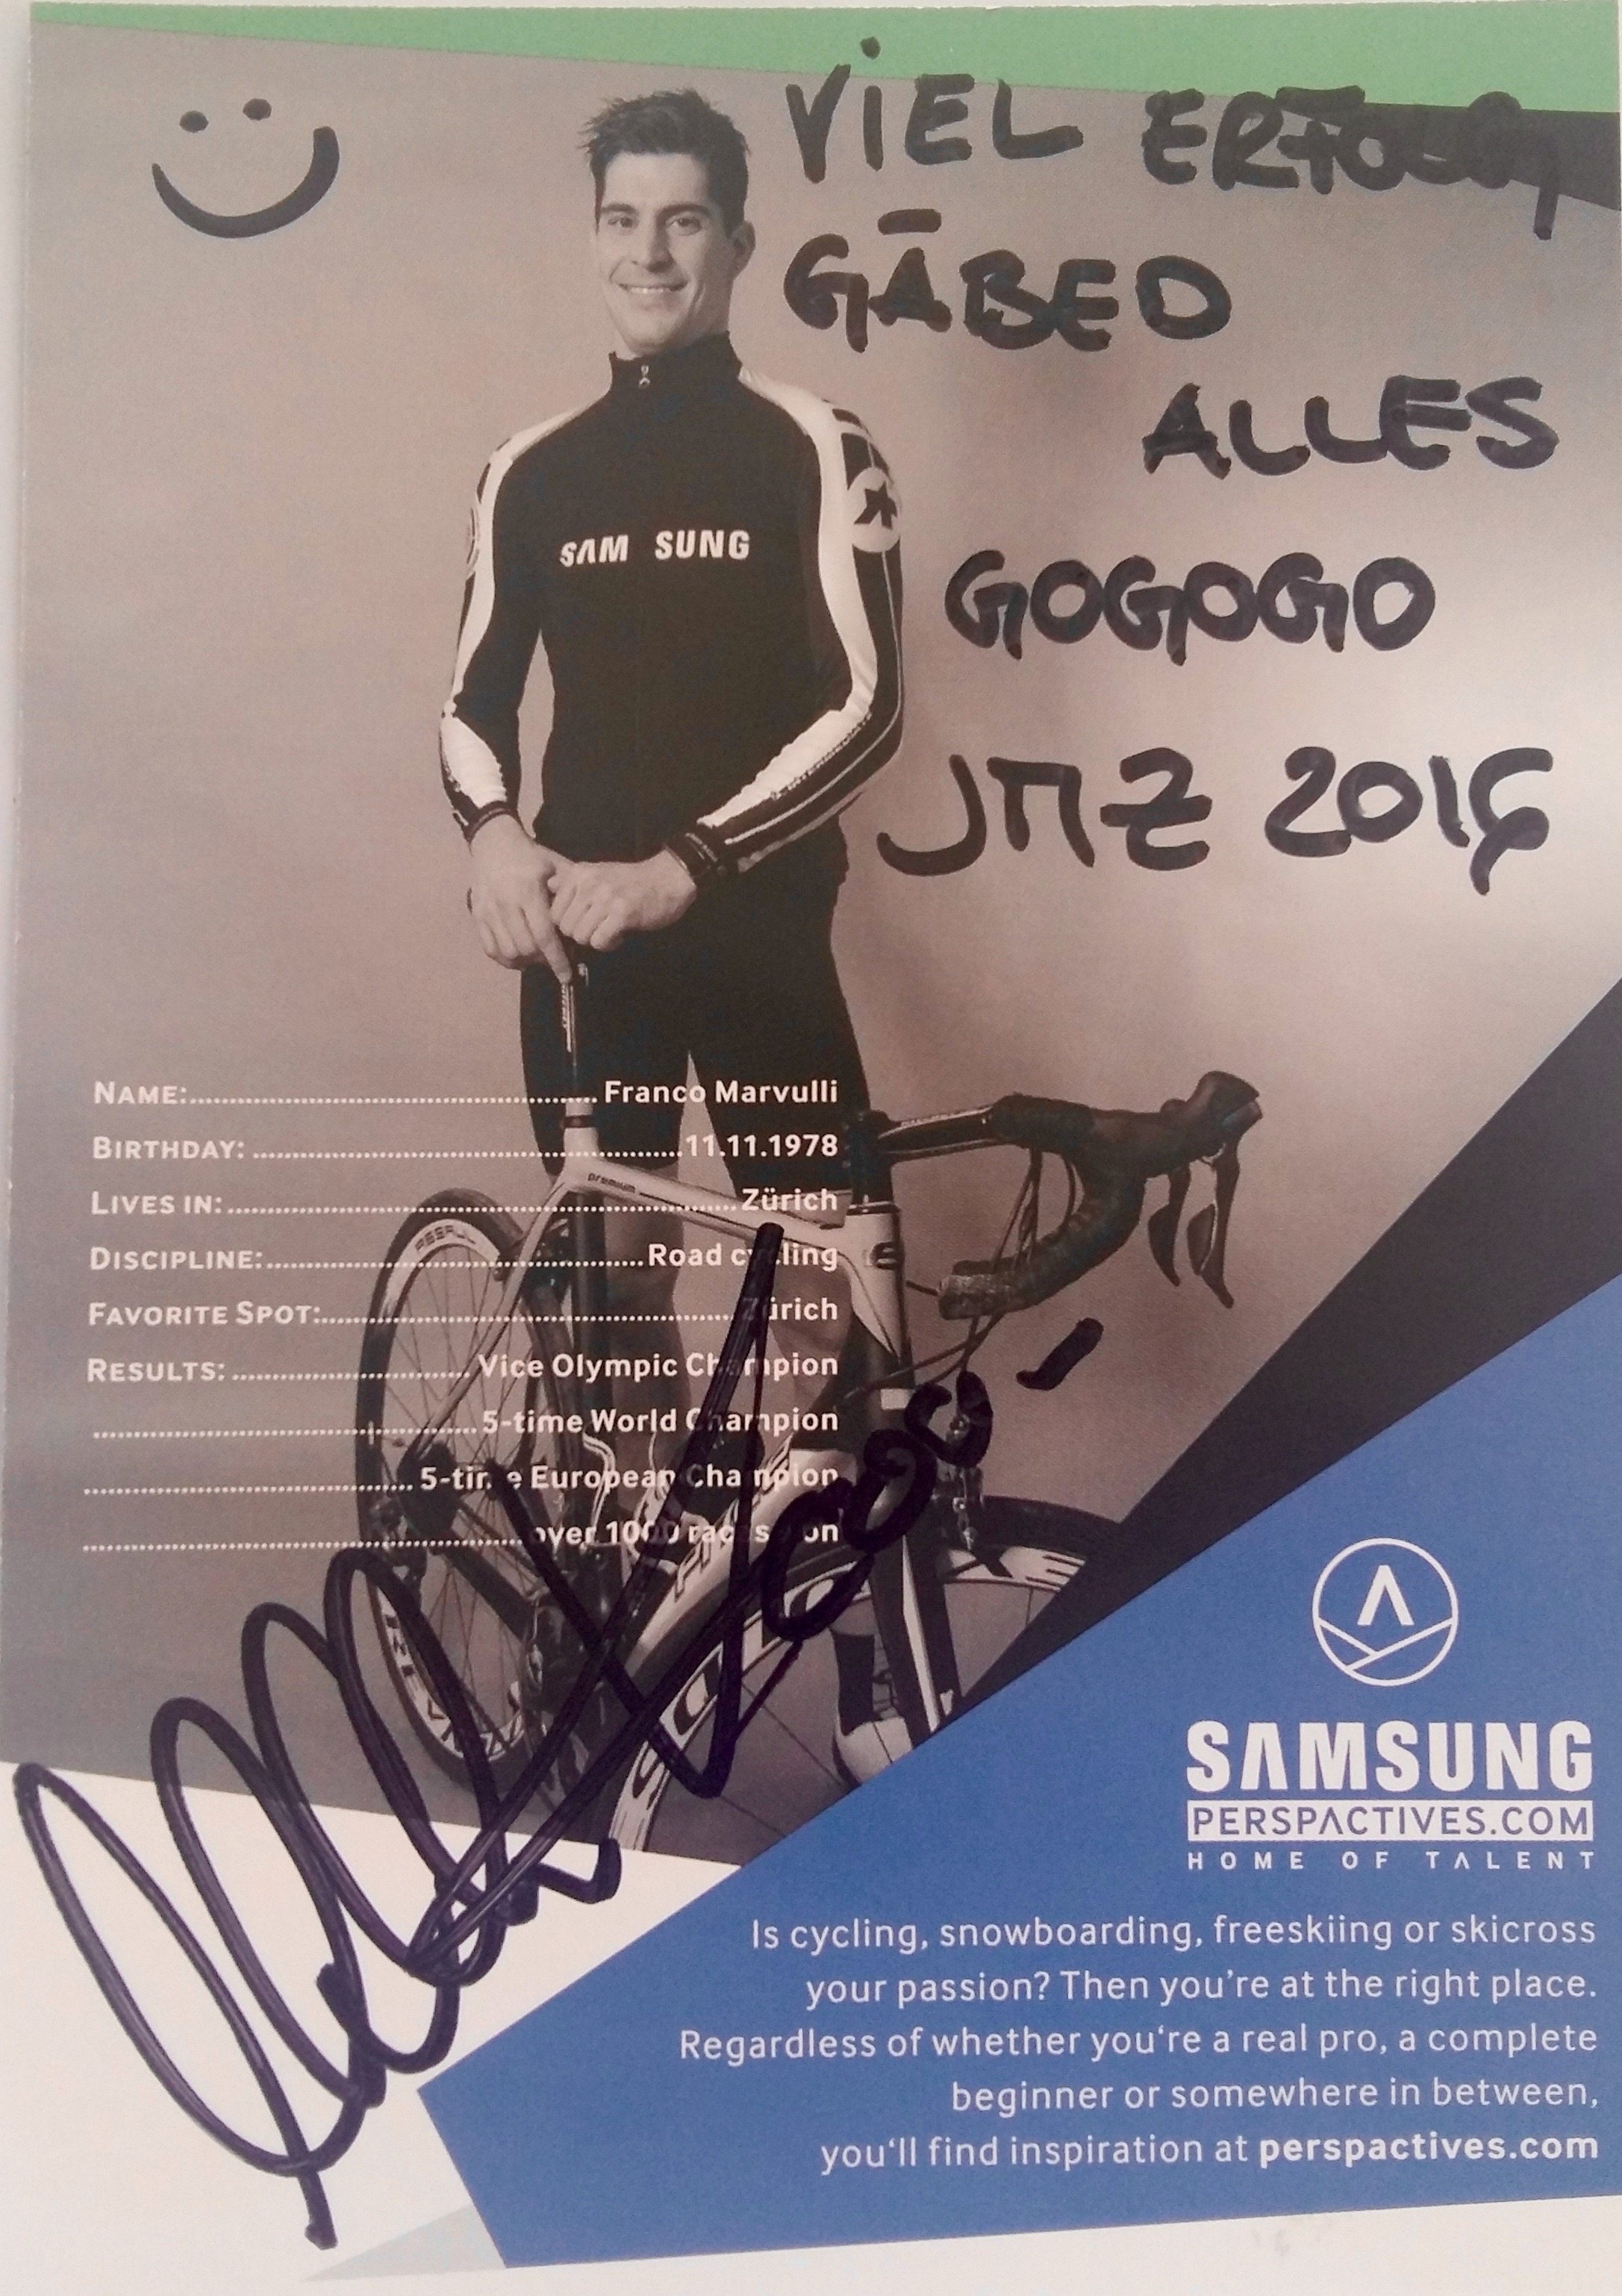 VIEL ERFOLG
GÄBED
ALLES
GOGOGO
JMZ 2016
SAM SUNG
NAME: Franco Marvulli
BIRTHDAY: 11.11.1978
LIVES IN: Zürich
DISCIPLINE: Road cycling
FAVORITE SPOT: Zürich
RESULTS: Vice Olympic Champion
5-time World Champion
5-time European Champion
over 1000 races won
premium
SAMSUNG
PERSPACTIVES.COM
HOME OF TALENT
Is cycling, snowboarding, freeskiing or skicross
your passion? Then you're at the right place.
Regardless of whether you're a real pro, a complete
beginner or somewhere in between,
you'll find inspiration at perspactives.com